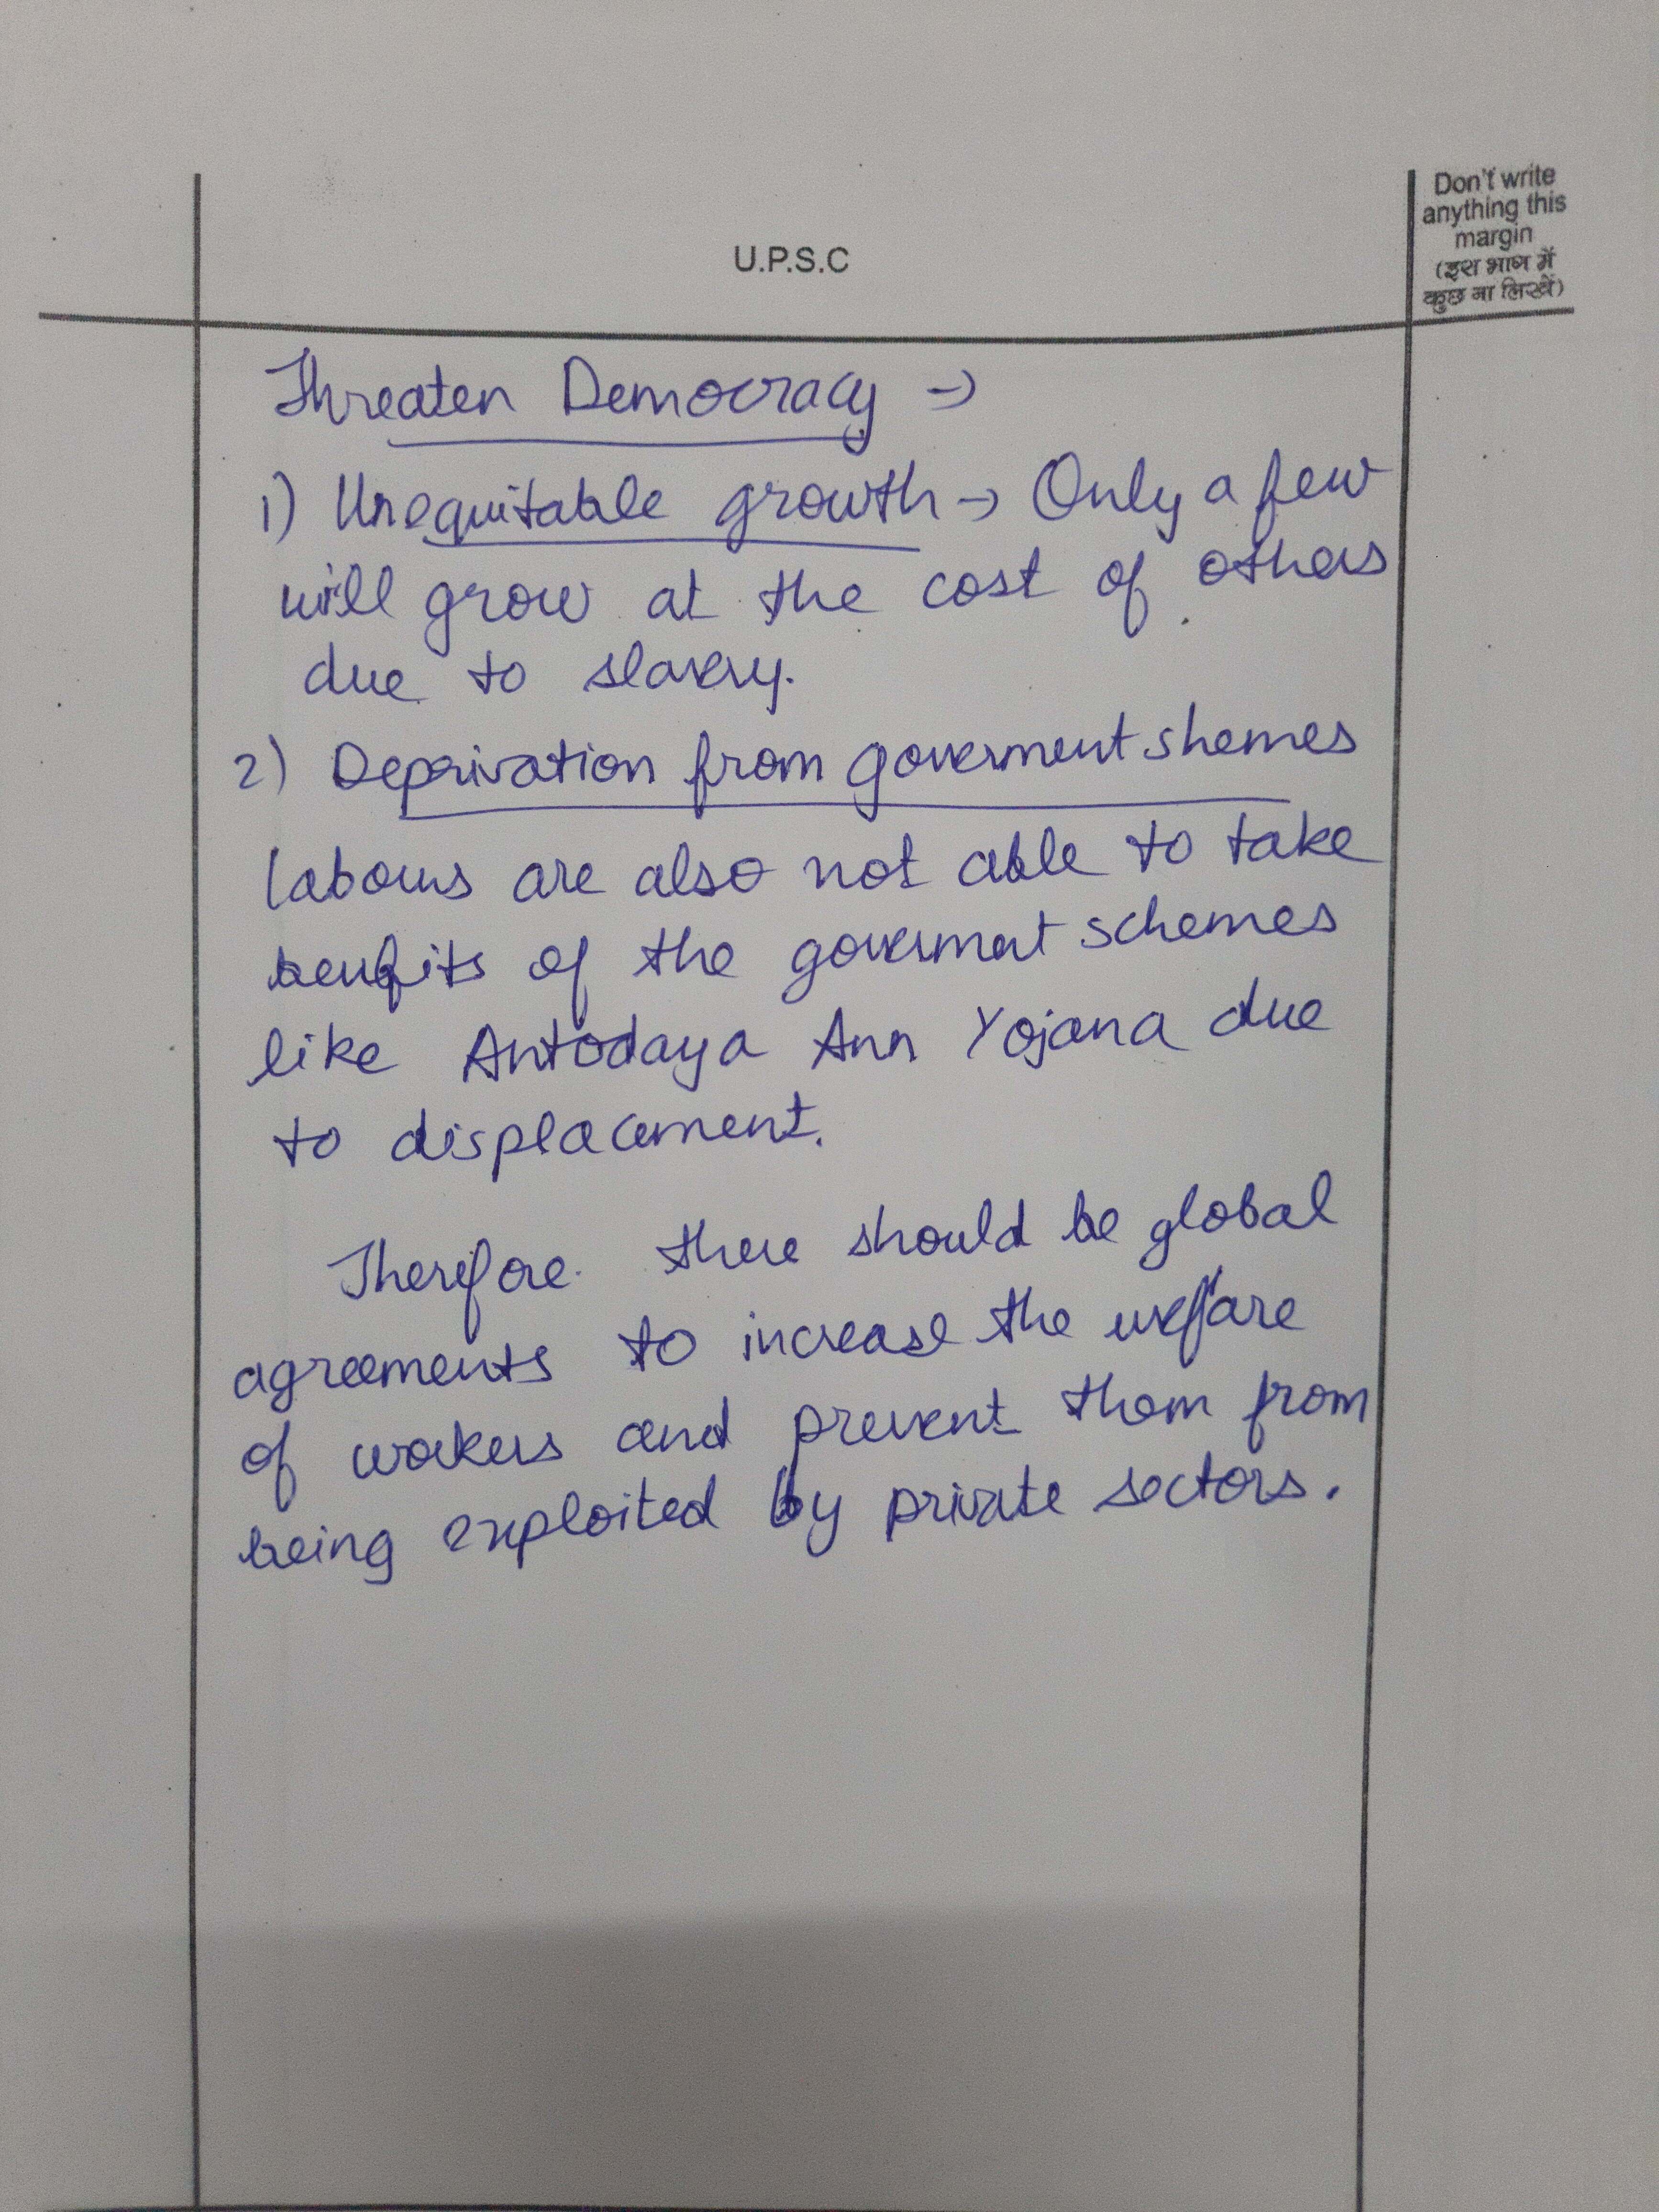 Don't write
anything this
margin
(इस भाग में
कुछ ना लिखें)
U.P.S.C
Threaten Democracy →
1) Unequitable growth → Only a few
will grow at the cost of others
due to slavery.
2) Deprivation from goverment shemes
labours are also not able to take
benefits of the goverment schemes
like Antodaya Ann Yojana due
to displacement.
Therefore there should be global
agreements to increase the welfare
of workers and prevent them from
being exploited by private sectors.